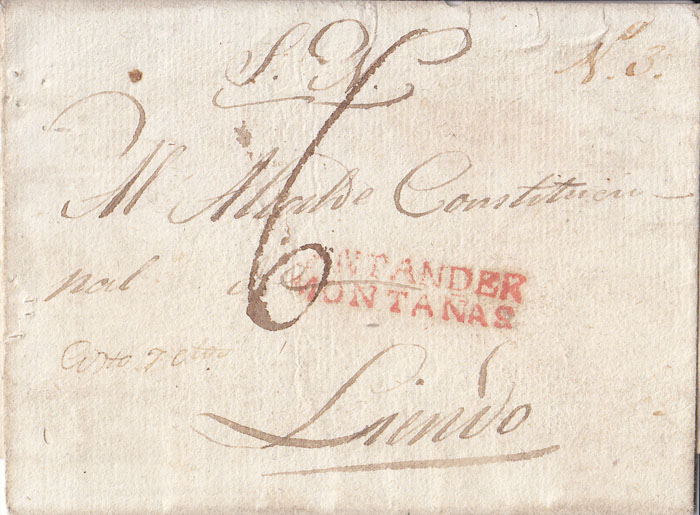 S. N.
Nº 3.
6
Al Alcalde Constitucio-
nal de
SANTANDER
MONTAÑAS
Liendo